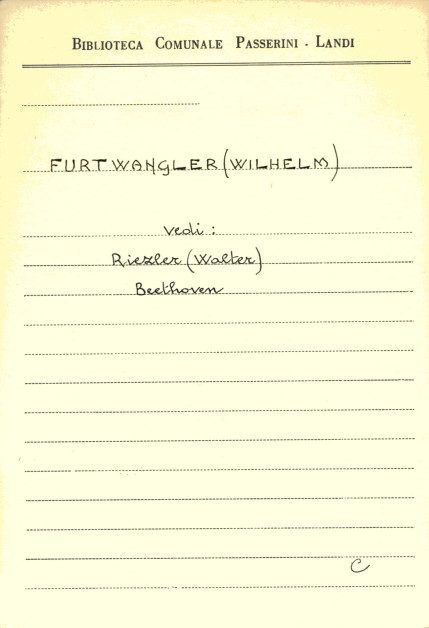 BIBLIOTECA COMUNALE PASSERINI - LANDI
FURTWANGLER (WILHELM)
vedi :
Riezler (Walter)
Beethoven
C